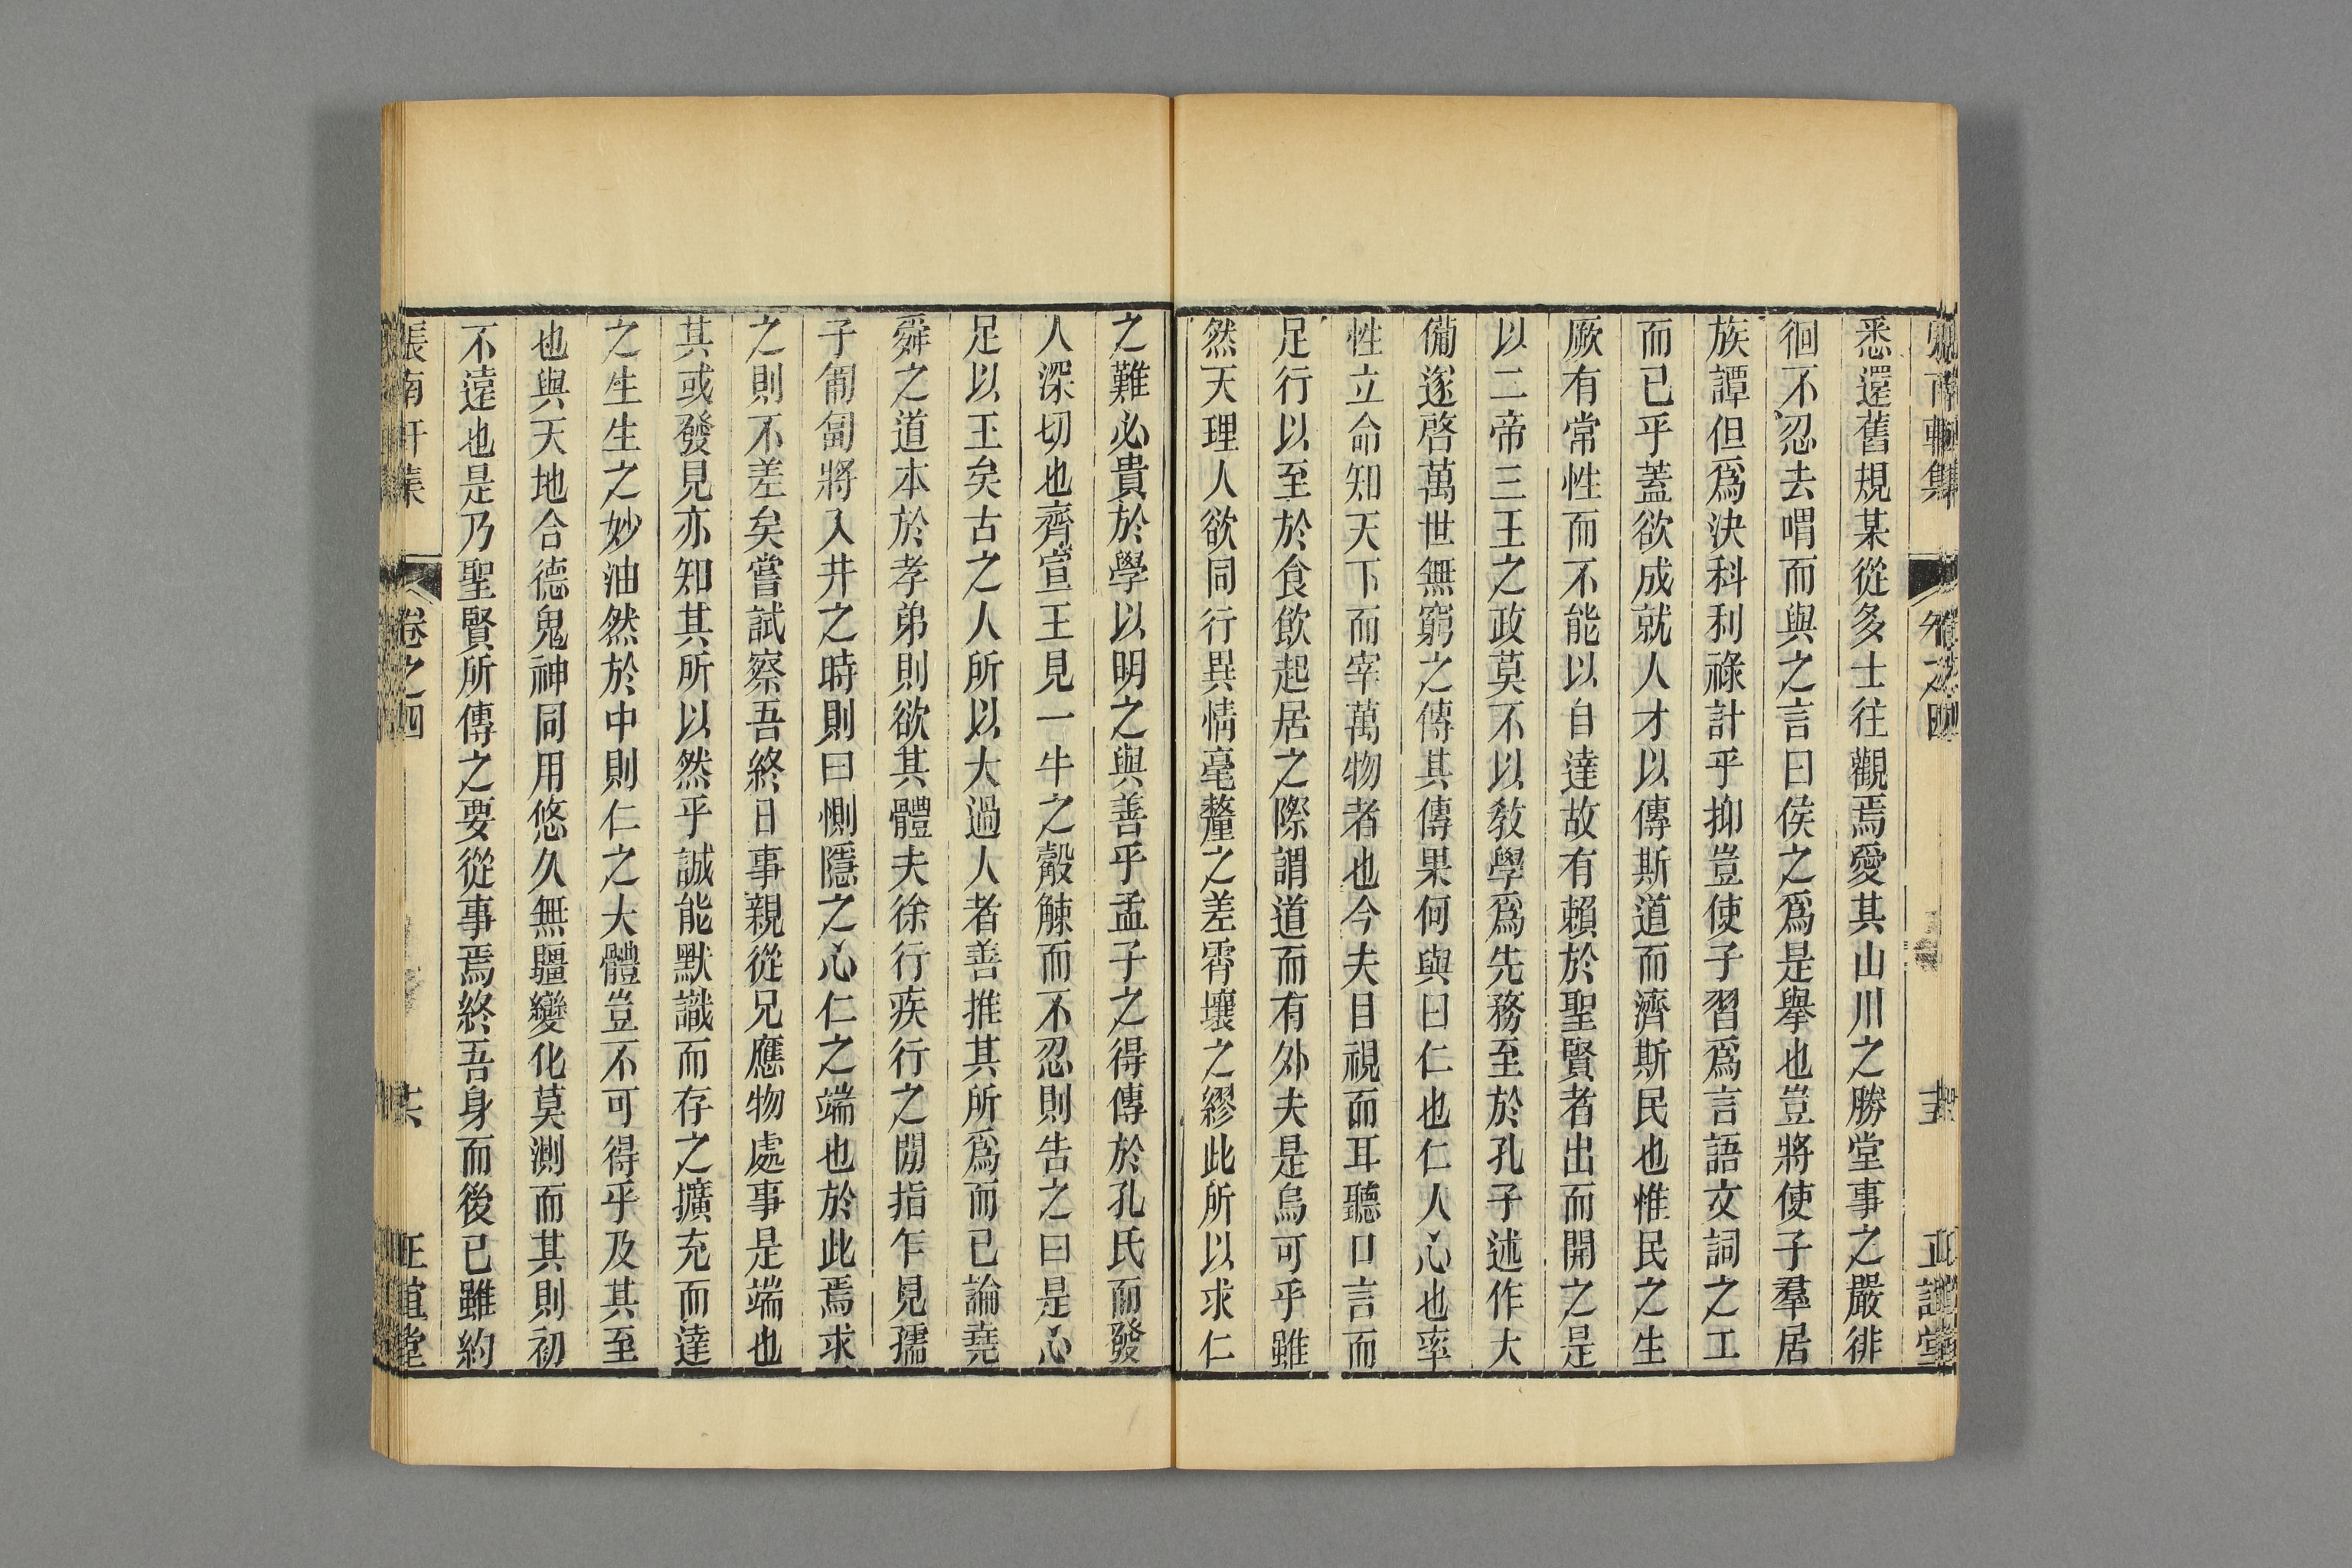 悉還舊規某從多士往觀焉愛其山川之勝堂事之嚴徘
徊不忍去喟而與之言曰侯之爲是舉也豈將使子羣居
族譚但爲決科利祿計乎抑豈使子習爲言語文詞之工
而已乎蓋欲成就人才以傳斯道而濟斯民也惟民之生
厥有常性而不能以自達故有賴於聖賢者出而開之是
以二帝三王之政莫不以敎學爲先務至於孔子述作大
備遂啓萬世無窮之傳其傳果何與曰仁也仁人心也率
性立命知天下而宰萬物者也今夫目視而耳聽口言而
足行以至於食飮起居之際謂道而有外夫是烏可乎雖
然天理人欲同行異情毫釐之差霄壤之繆此所以求仁
之難必貴於學以明之與善乎孟子之得傳於孔氏而發
人深切也齊宣王見一牛之觳觫而不忍則告之曰是心
足以王矣古之人所以大過人者善推其所爲而已論堯
舜之道本於孝弟則欲其體夫徐行疾行之閒指乍見孺
子匍匐將入井之時則曰惻隱之心仁之端也於此焉求
之則不差矣嘗試察吾終日事親從兄應物處事是端也
其或發見亦知其所以然乎誠能默識而存之擴充而達
之生生之妙油然於中則仁之大體豈不可得乎及其至
也與天地合德鬼神同用悠久無疆變化莫測而其則初
不遠也是乃聖賢所傳之要從事焉終吾身而後已雖約
張南軒集 卷之四 正誼堂